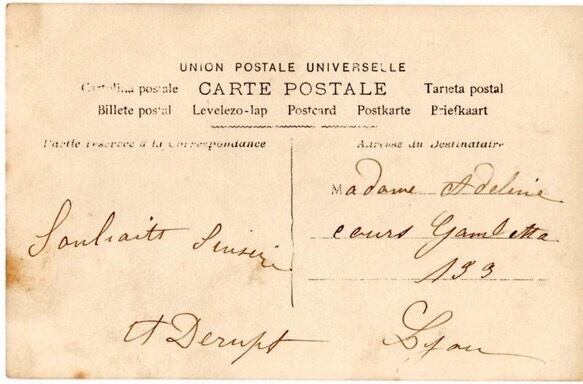 UNION POSTALE UNIVERSELLE
Cartolina postale CARTE POSTALE Tarjeta postal
Billete postal Levelezo-lap Postcard Postkarte Briefkaart
Partie réservée à la Correspondance
Adresse du Destinataire
Madame Adeline
cours Gambetta
133
Lyon
Souhaits Sinsère
A Derupt